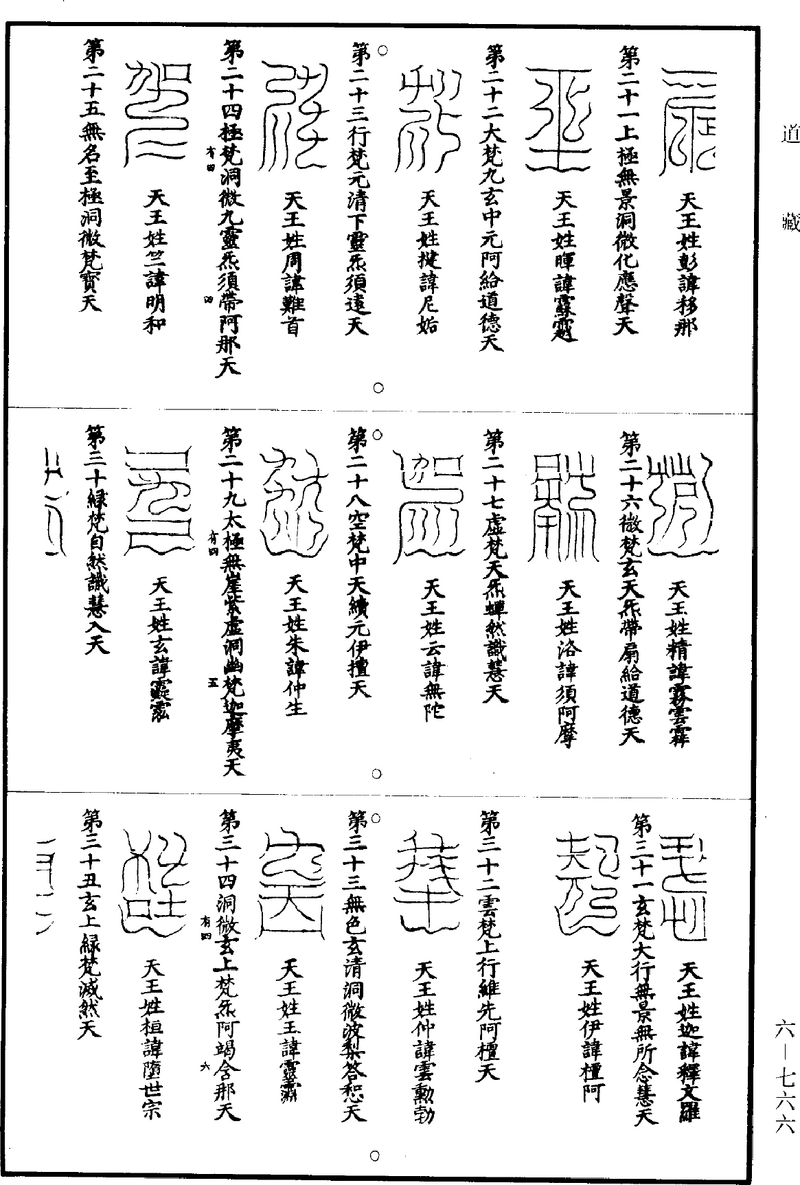 道藏
天王姓彭諱移那
第二十一上極無景洞微化應聲天
天王姓暉諱霖
第二十二大梵九玄中元阿給道德天
天王姓揵諱尼姤
○
第二十三行梵元清下靈炁須遠天
天王姓周諱難首
第二十四極梵洞微九靈炁須帶阿那天
有四
四
天王姓竺諱明和
第二十五無名至極洞微梵寶天
○
天王姓精諱霧雲霏
第二十六微梵玄天炁帶扇給道德天
天王姓洛諱須阿摩
第二十七虛梵天炁蟬然識慧天
天王姓云諱無陀
○
第二十八空梵中天續元伊檀天
天王姓朱諱仲生
第二十九太極無崖紫虛洞幽梵迦摩夷天
有四
五
天王姓玄諱
第三十緑梵自然識慧入天
○
天王姓迦諱釋文羅
第三十一玄梵大行無景無所念慧天
天王姓伊諱檀阿
第三十二雲梵上行維先阿檀天
天王姓仲諱雲勳勃
○
第三十三無色玄清洞微波梨答惒天
天王姓王諱靈
第三十四洞微玄上梵炁阿竭含那天
有四
六
天王姓桓諱墮世宗
第三十五玄上緑梵滅然天
○
六—七六六